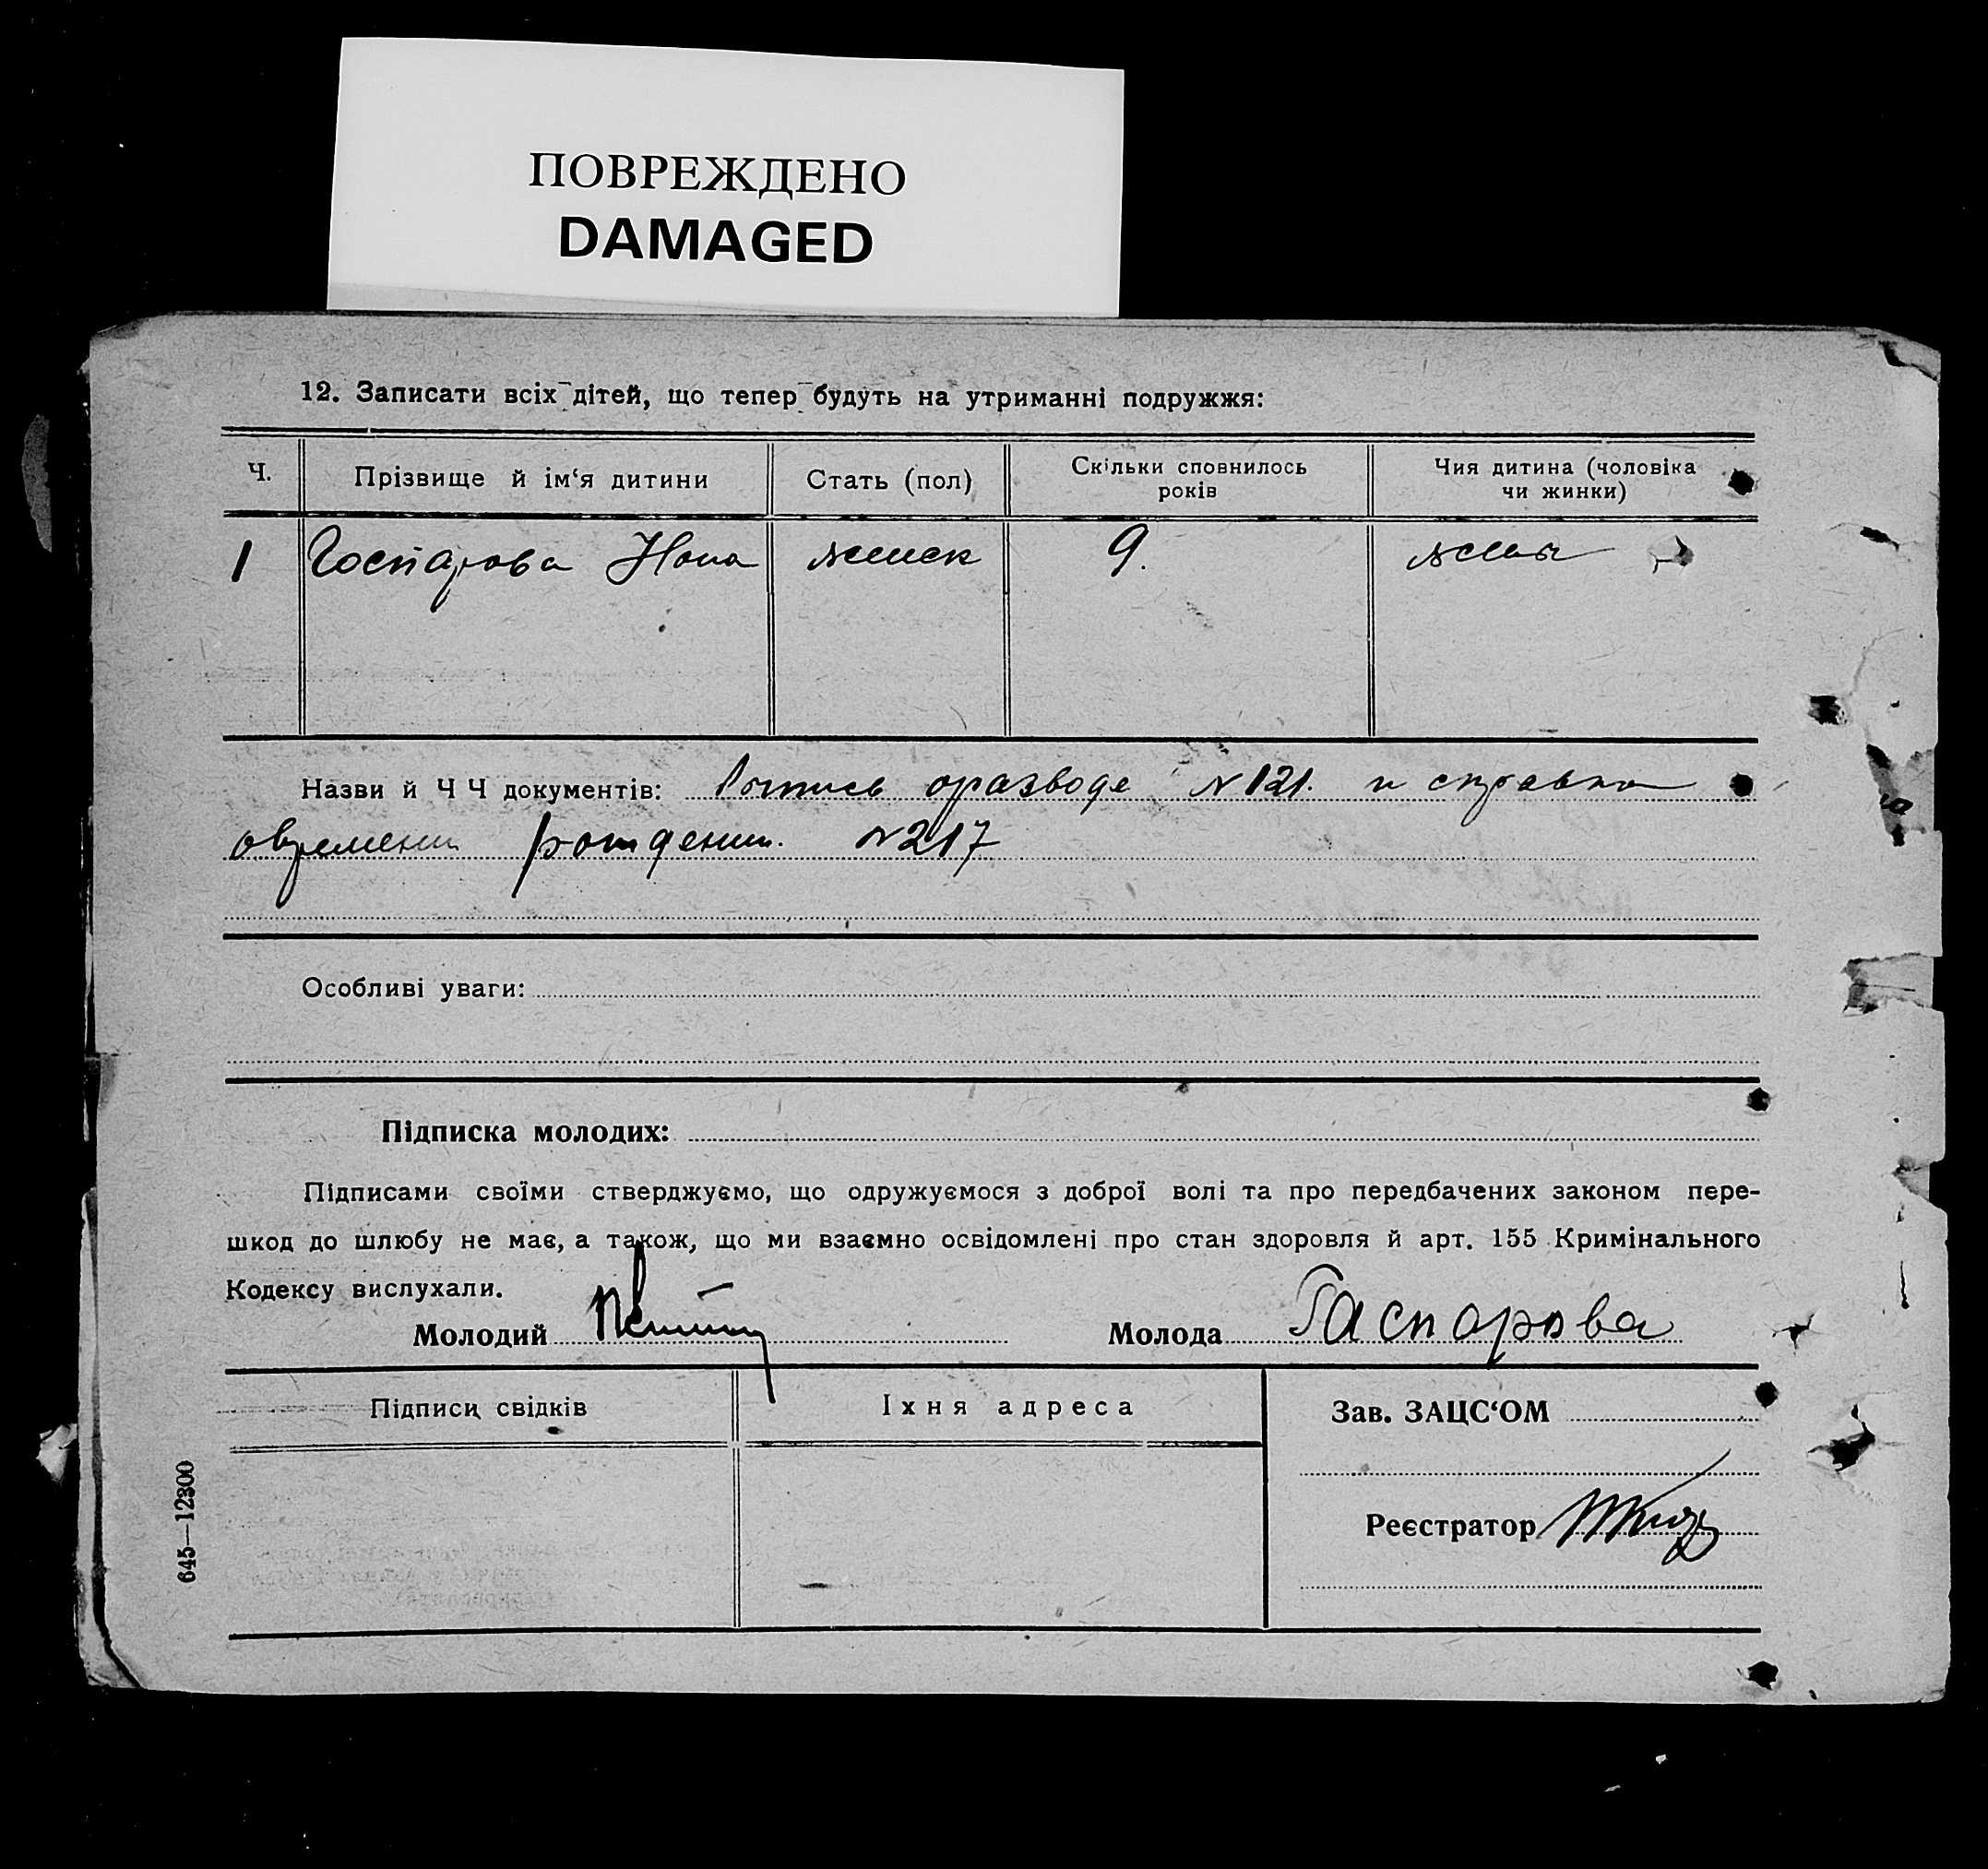 ПОВРЕЖДЕНО
DAMAGED
12. Записати всіх дітей, що тепер будуть на утриманні подружжя:
Ч. Прізвище й ім‘я дитини Стать (пол) Скільки сповнилось років Чия дитина (чоловіка чи жинки)
1 Гospарова Нона женск 9. жены
Назви й Ч Ч документів: опись оразводе N 121. и справка
овремени рождении. N 217
Особливі уваги:
Підписка молодих:
Підписами своїми стверджуємо, що одружуємося з доброї волі та про передбачених законом пере-
шкод до шлюбу не має, а також, що ми взаємно освідомлені про стан здоровля й арт. 155 Кримінального
Кодексу вислухали.
Молодий Молода Гаспарова
Підписи свідків Їхня адреса Зав. ЗАЦС‘ОМ
Реєстратор
645—12300